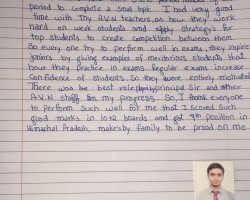 period to complete a small topic. I had very good
time with my A.V.N teachers, as how they work
hard on weak students and strategys for
top students, create completion between them.
So every one try to perform well in exams, they inspire
juniors by giving examples of meritorious students that
how they practice in exams. Regular exams increase
confidence of students. So they were entirely motivated
There was best role by principal Sir and other
A.V.N staff for my progress. So, I thank everyone
to perform such well for me that I scored such
good marks in 10+2 boards and got 9th position in
Himachal Pradesh, makes my family to be proud on me